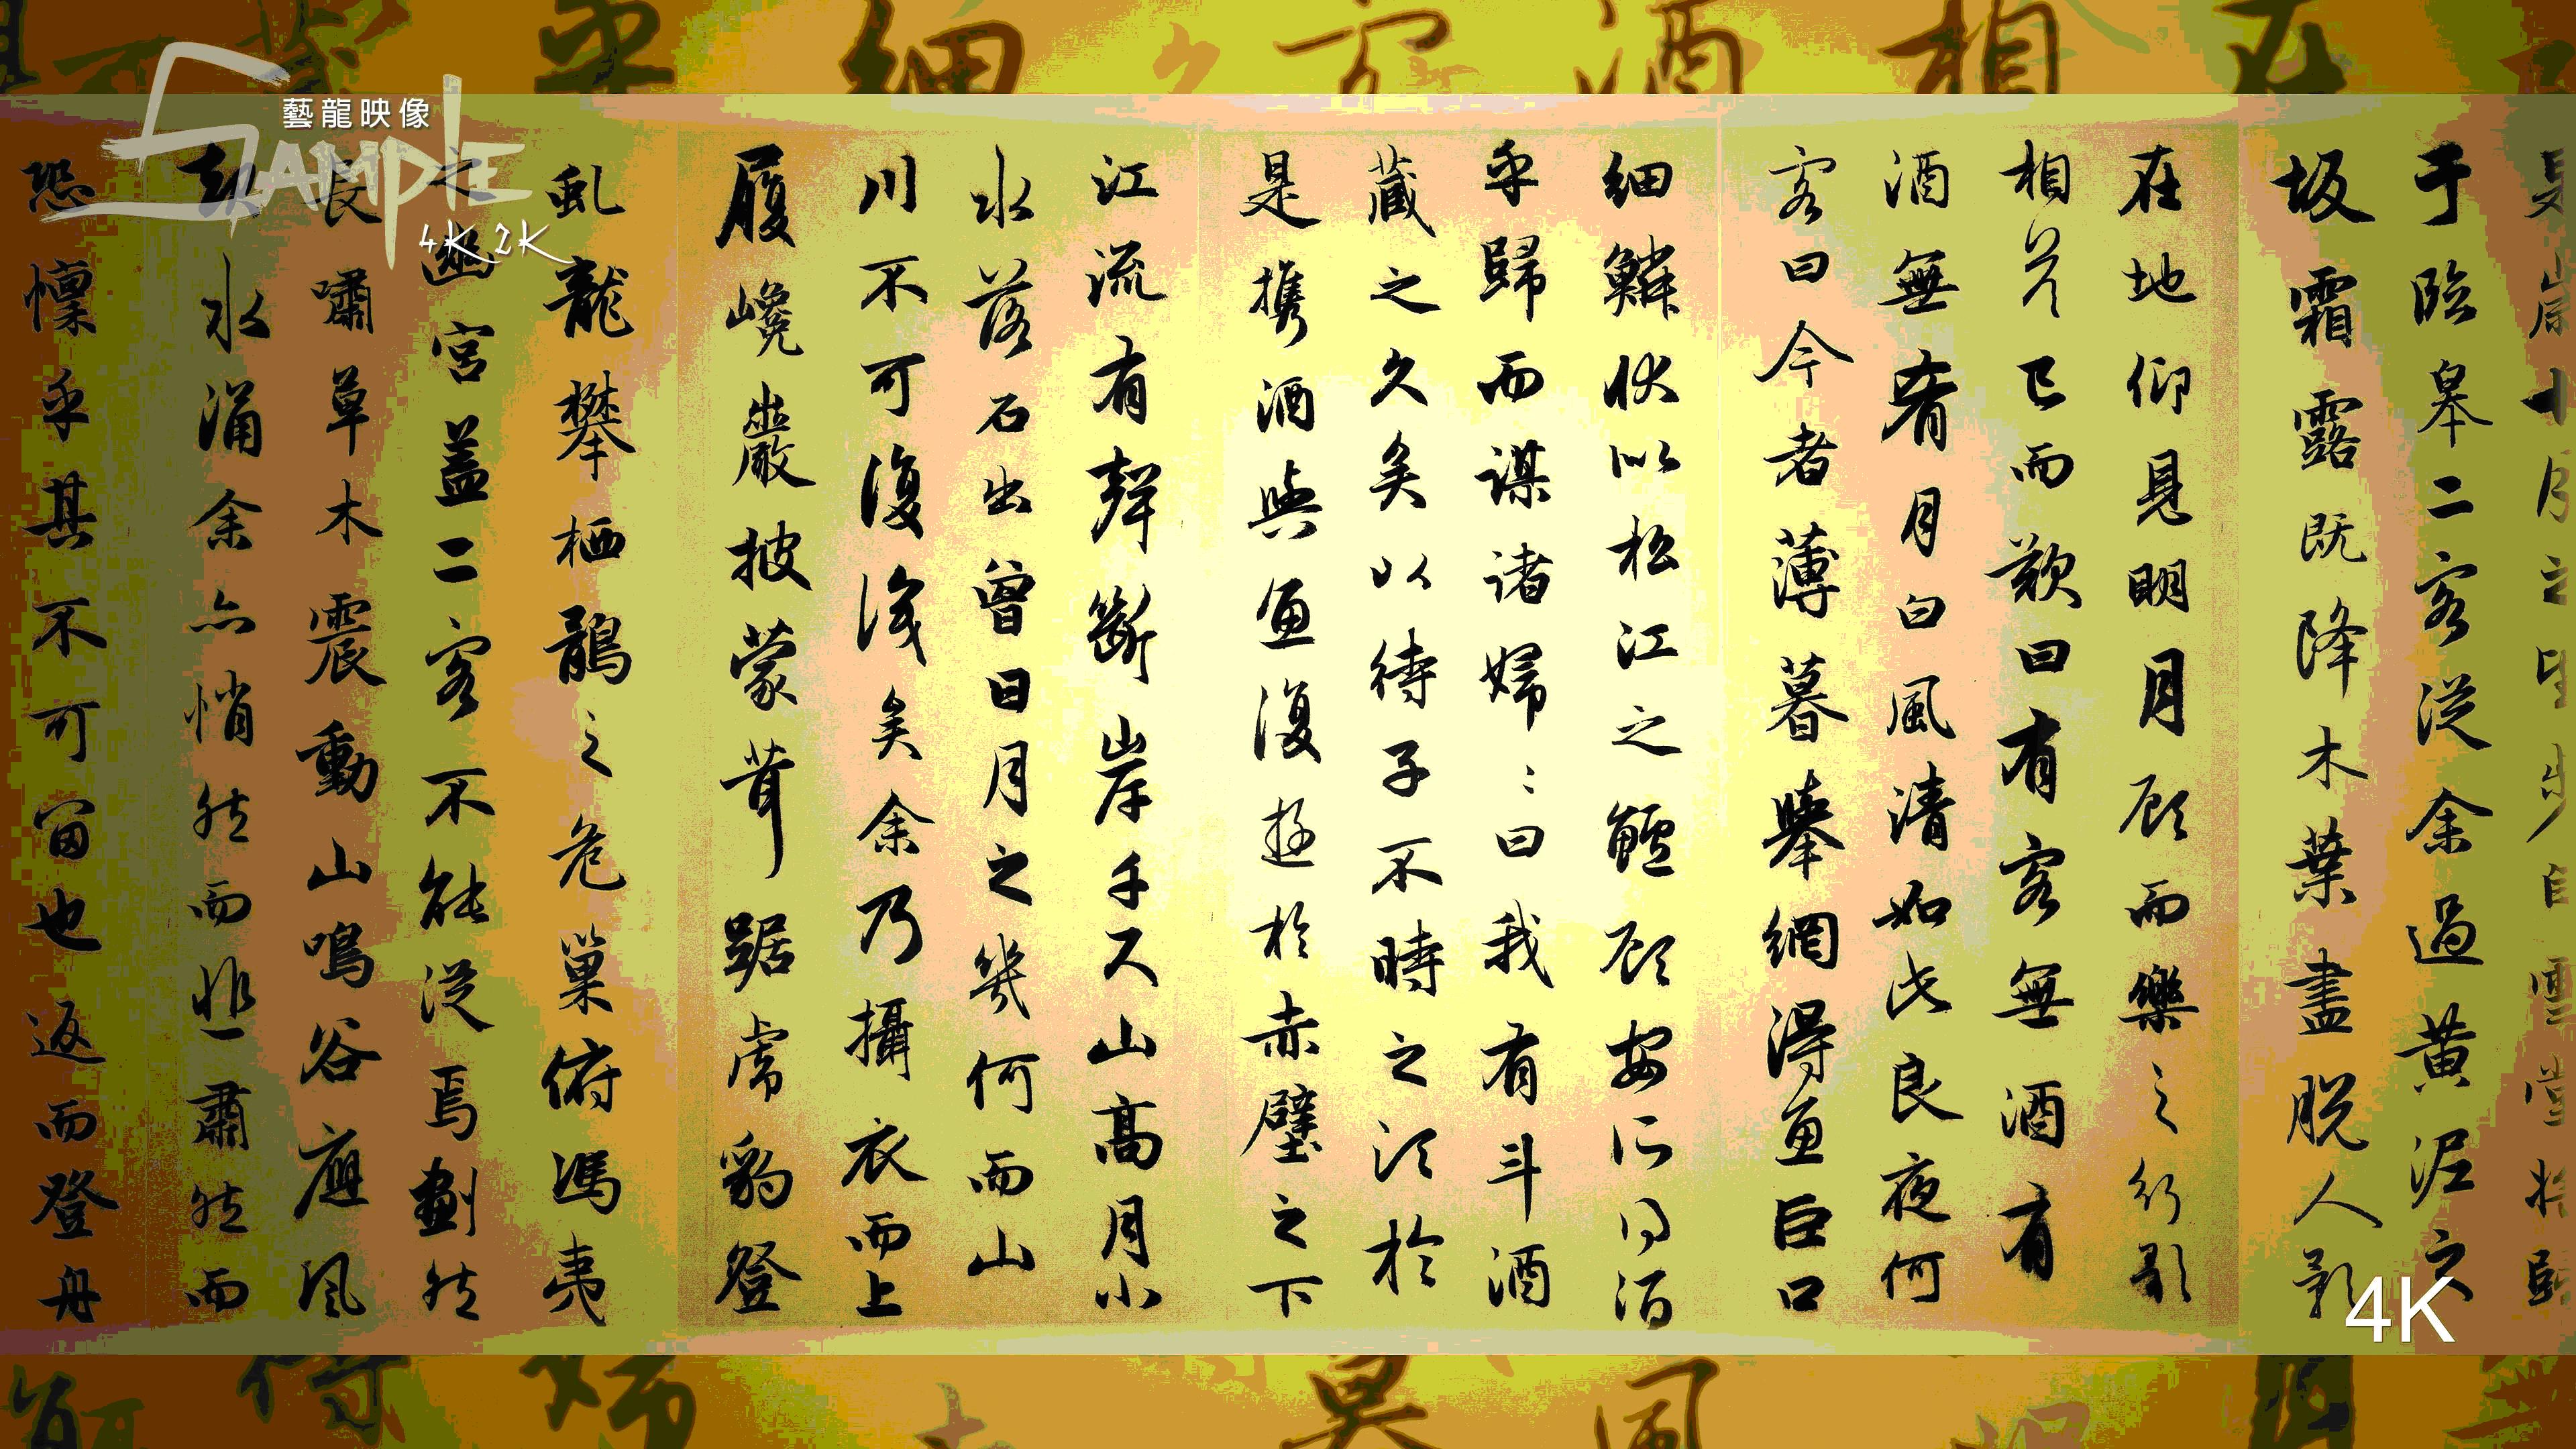 是歲十月之望步自雪堂將歸
于臨皋二客從余過黃泥之
坂霜露既降木葉盡脫人影
在地仰見明月顧而樂之行歌
相答已而歎曰有客無酒有
酒無肴月白風清如此良夜何
客曰今者薄暮舉網得魚巨口
細鱗狀似松江之鱸顧安所得酒
乎歸而謀諸婦〻曰我有斗酒
藏之久矣以待子不時之須於
是攜酒與魚復遊於赤壁之下
江流有聲斷岸千尺山高月小
水落石出曾日月之幾何而山
川不可復識矣余乃攝衣而上
履巉巖披蒙茸踞虎豹登
虬龍攀栖鶻之危巢俯馮夷
之幽宮蓋二客不能從焉劃然
長嘯草木震動山鳴谷應風
起水涌余亦悄然而悲肅然而
恐懍乎其不可留也返而登舟
藝龍映像
SAMPLE
4K 2K
4K